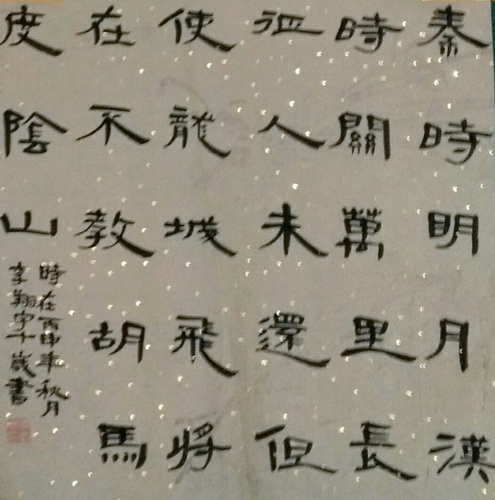 秦時明月漢
時關萬里長
征人未還但
使龍城飛將
在不教胡馬
度陰山
時在丙申年秋月
李翔宇十歲書